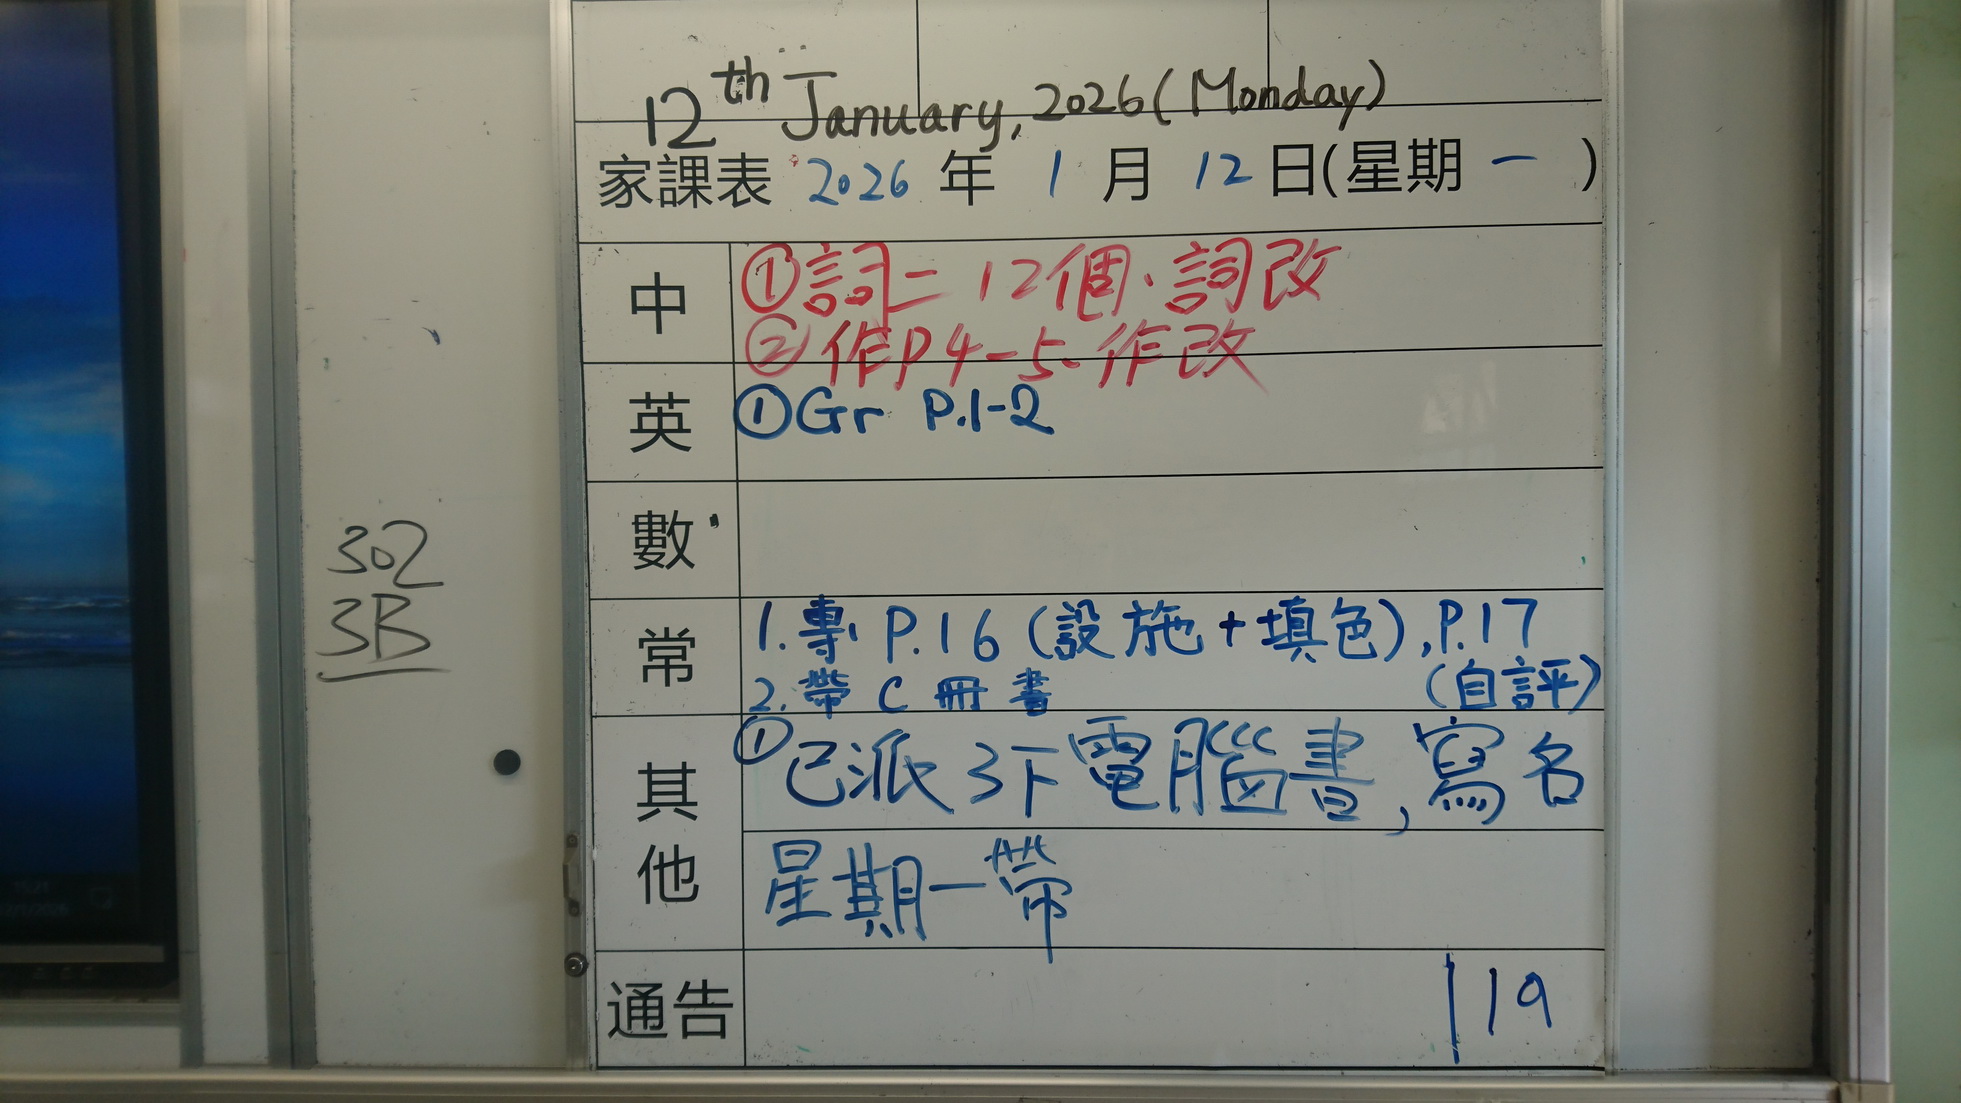 12th January, 2026 (Monday)
家課表 2026 年 1 月 12 日(星期 一 )
中 ①詞二 12個·詞改
②作P4-5·作改
英 ①Gr P.1-2
數
302
3B
常 1.專 P.16 (設施+填色), P.17
(自評)
2. 帶 C 冊書
其他 ①已派3下電腦書, 寫名
星期一帶
通告 119